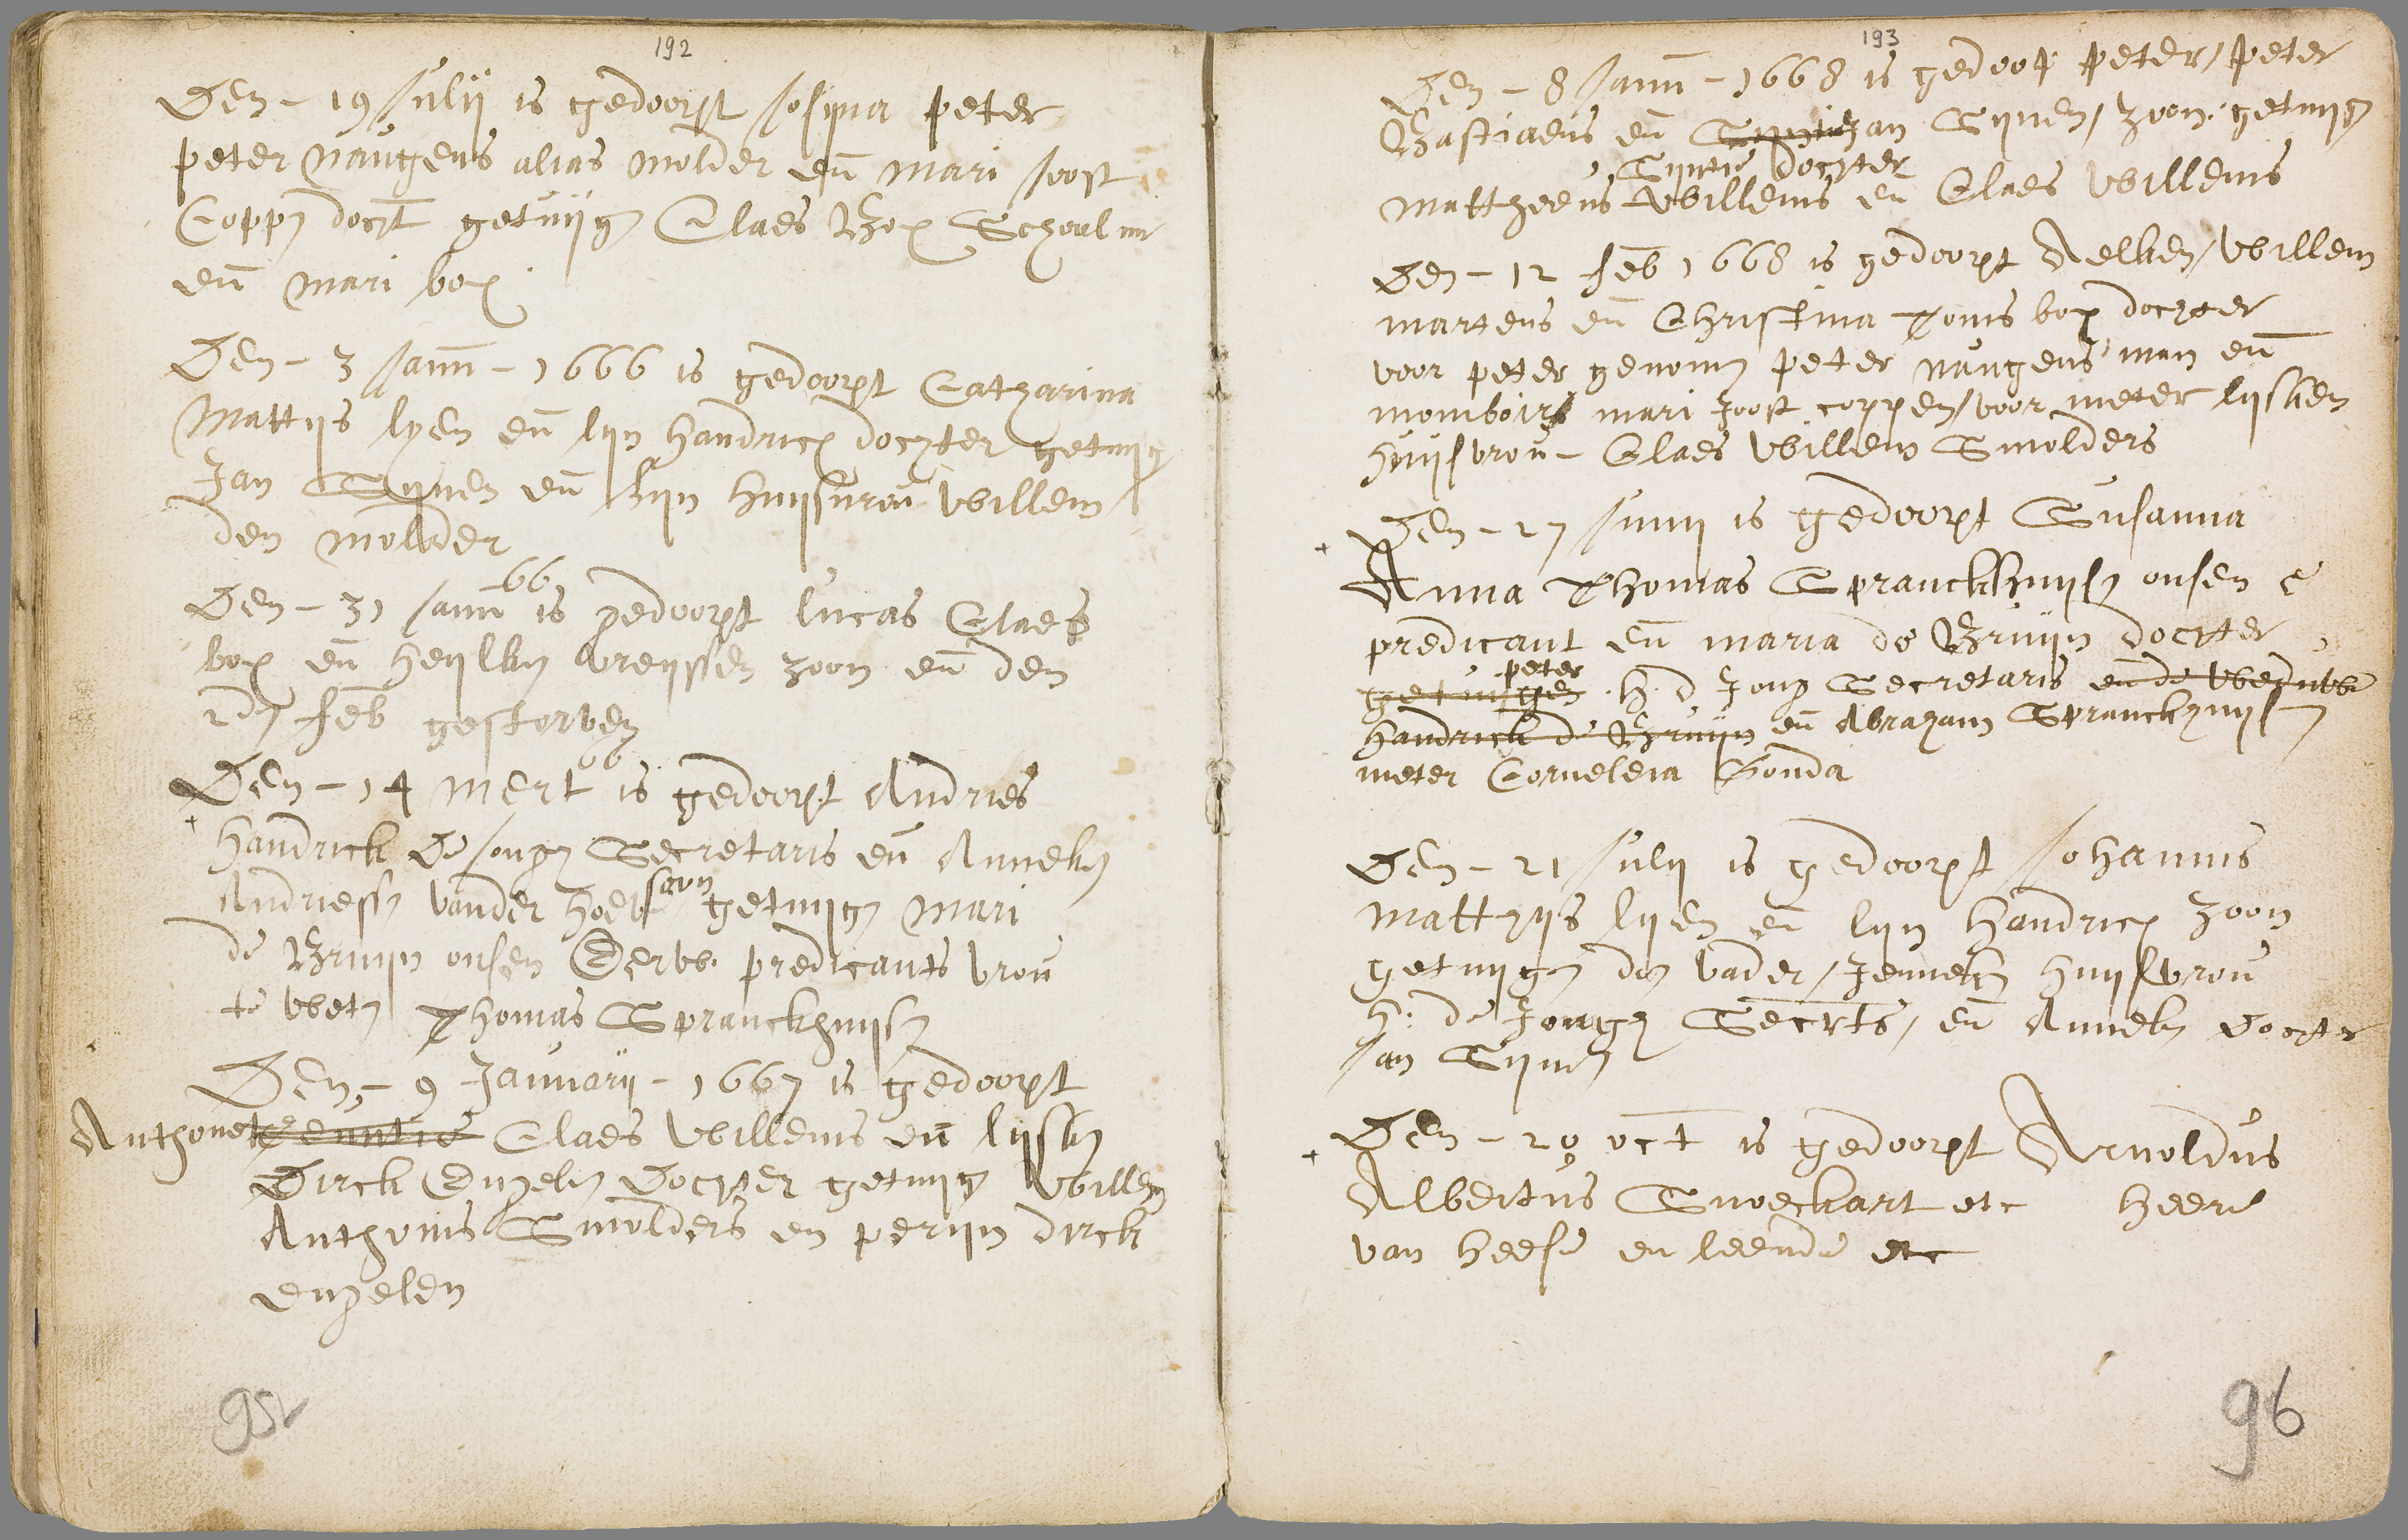 192
Den - 19 Julij is gedoopt Josijna peter
peter Naugens alias molder en mari Joost
Coppen docht getuijgen Claes Box Schoulm
en mari box
Den - 3 Jann - 1666 is gedoopt Catharina
Mattijs lijen en lijn Handricx dochter getuijg
Jan Sijmen en Lijn huijsvrou Willem
den molder
66
Den - 31 Jann is gedoopt lucas Claes
box en Heijlken vreijssen zoon en den
27 feb gestorven
66
Den - 14 mert is gedoopt Andries
Handrick De Jongen Secretaris en Anneken
Andriessen vander Hoeve soon getuijgen Mari
de Bruijn onsen Eerw. predicants vrou
te weten Thomas Spranckhuijsen
Den - 9 Januarij - 1667 is gedoopt
Anthonet Teuntie Claes Willems en lijsken
Dirck Engelen Dochter getuijgen Willem
Anthonis Smolders en perijn dirck
engelen
95v
193
Den - 8 Jann - 1668 is gedoop peter / peter
Bastiaens en Jan Sijmen / zoon. getuijgen
Sijntie dochter
Mattheeus Willems en Claes Willems
Den - 12 feb 1668 is gedoopt Aelken / Willem
martens en Christina Tonis box dochter
voor peter genomen peter naugens man en
momboir mari Joost coppen / voor meter lijsken
huijsvrou - Claes Willem Smolders
Den - 27 Junij is gedoopt Susanna
Anna Thomas Spranckhuijsen onsen E
predicant en maria de Bruijn dochter
peter
getuijgen H. d Jong Secretaris ende
Handrick de Bruijn en Abraham Spranckhuijsen
meter Cornelia Gonda
Den - 21 Julij is gedoopt Johannis
Matthijs lijen en lijn Handricx zoon
getuijgen den vader / Jenneken huijsvrou
H: de Jongen Secrts / en Anneken Dochter
Jan Sijmen
Den - 20 oct is gedoopt Arnoldus
Albertus Snoeckart etc Heere
van Heese en leende etc
96